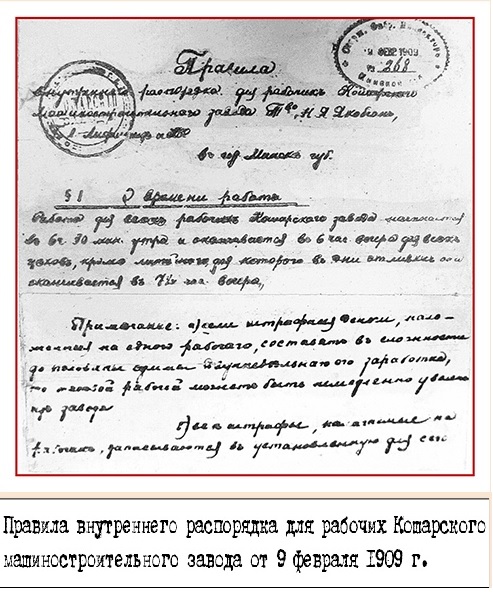 Правила
внутренняго распорядка для рабочихъ Кошарскаго
машиностроительнаго завода Т-во Н. Я. Якобсонъ,
въ гор. Минскѣ губ.
9 ФЕВР 1909
268
§ 1 О времени работы
Работа для всѣхъ рабочихъ Кошарскаго завода начинается
въ 6 ч. 30 мин. утра и оканчивается въ 6 час. вечера для всѣхъ
цеховъ, кромѣ литейнаго, для котораго въ дни отливки
оканчивается въ 7½ час. вечера.
Примѣчанiе: а) если штрафныя деньги, нало-
женныя на одного рабочаго, составятъ въ сложности
до половины суммы заработка,
то такой рабочiй можетъ быть немедленно
завода
б) всѣ штрафы, на
рабочихъ, записываются въ установленную для сего
Правила внутреннего распорядка для рабочих Кошарского
машиностроительного завода от 9 февраля 1909 г.